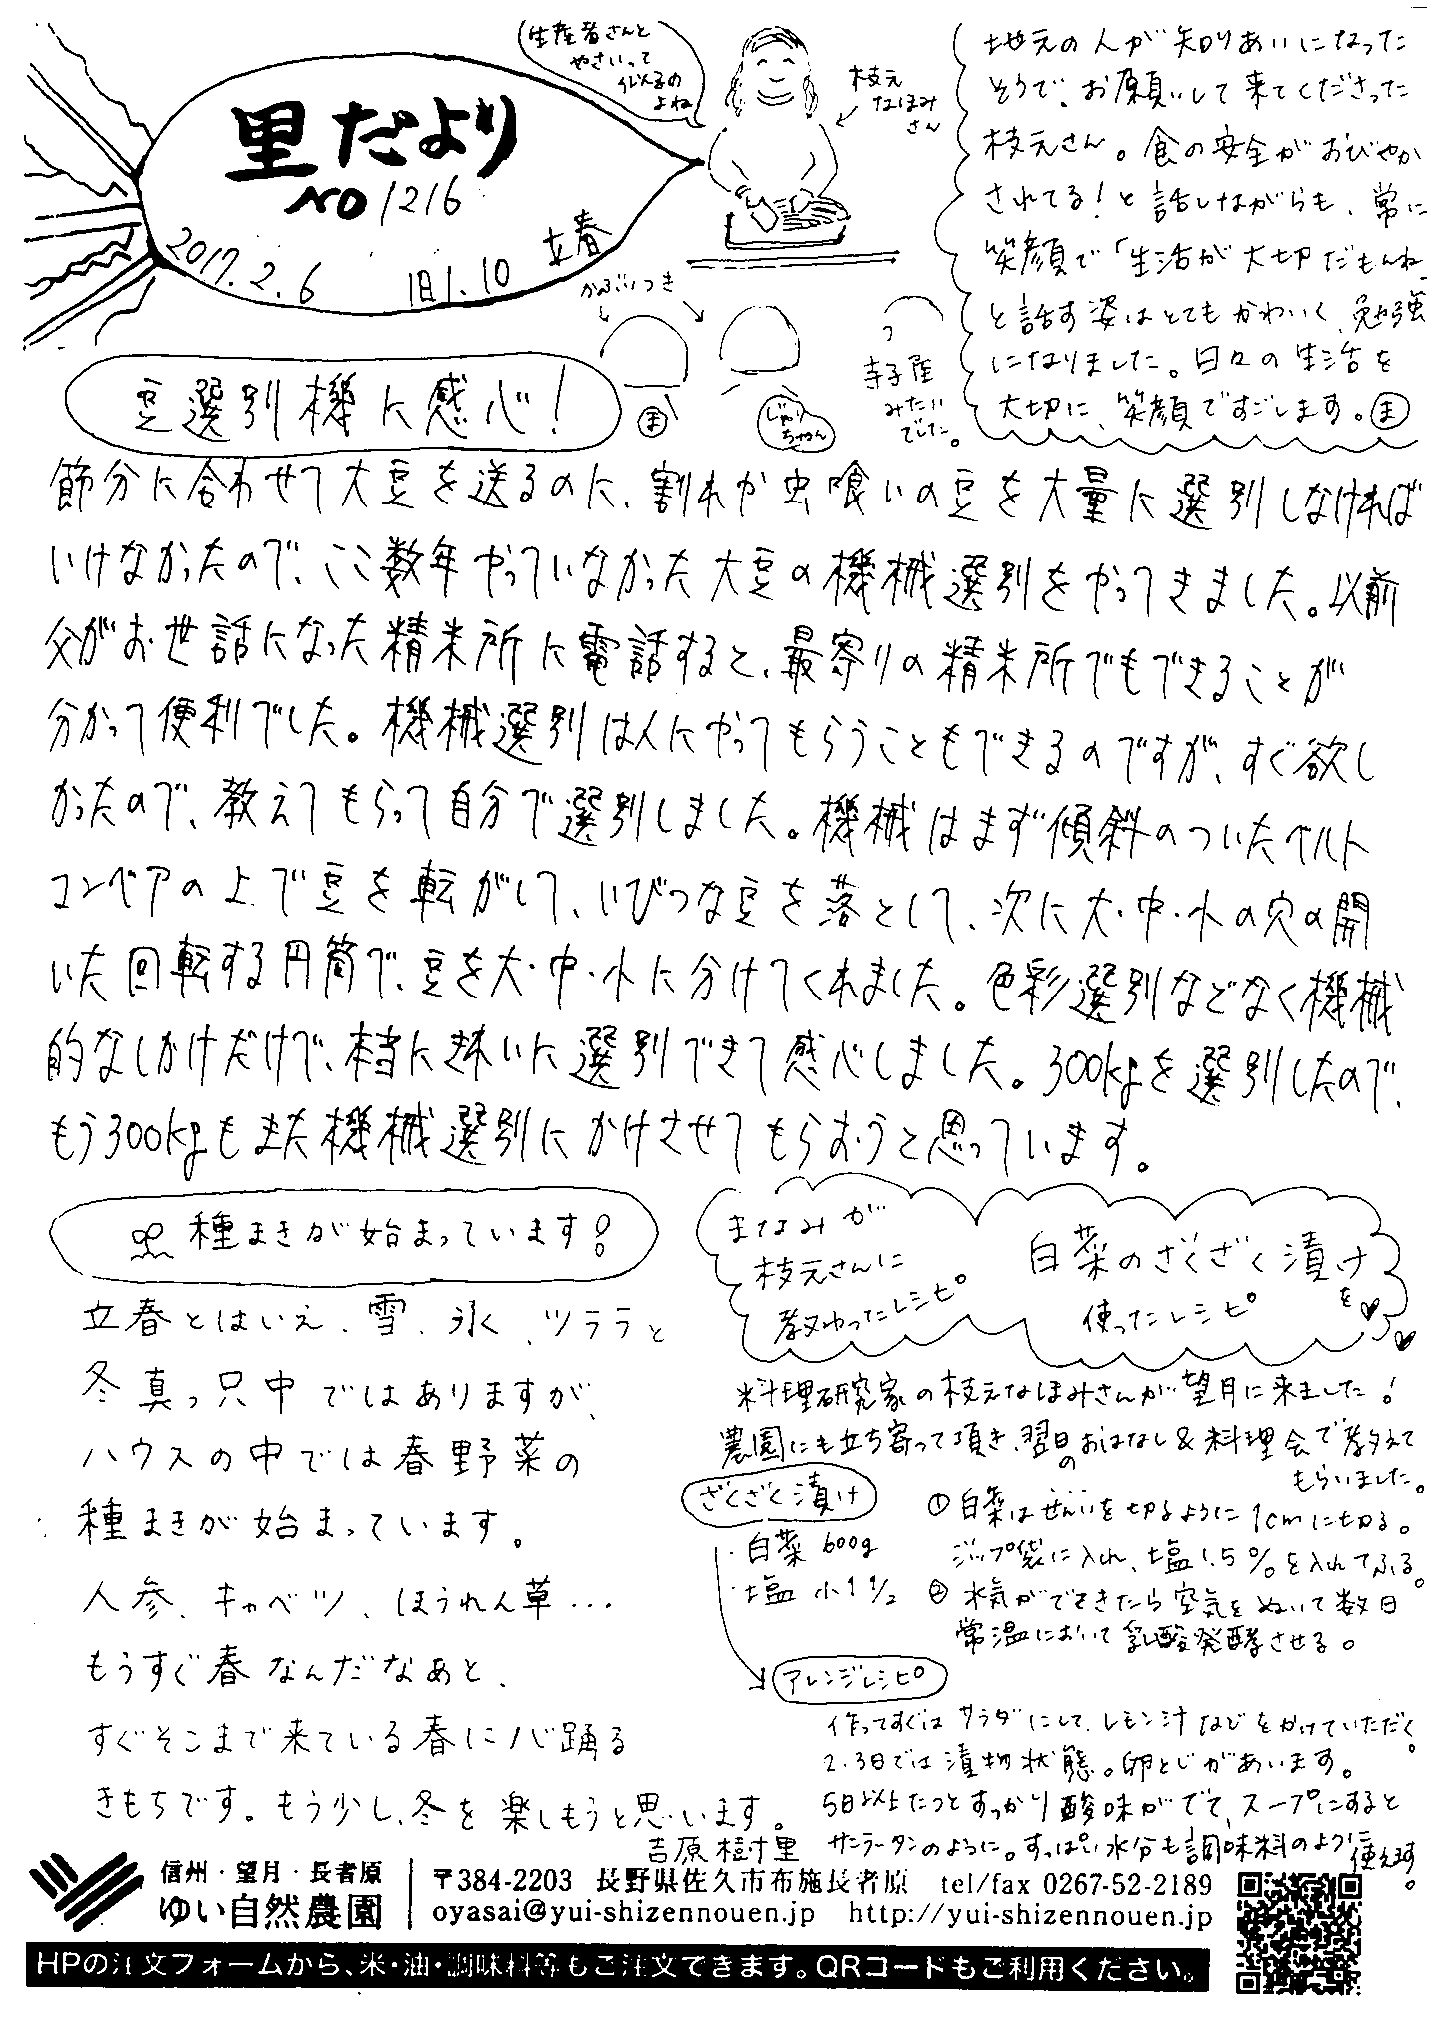 里だより
NO 1216
2017.2.6 旧1.10 立春
生産者さんと
やさいって
似るの
よね
枝元
なほみ
さん
かぶりつき
ま
じゅり
ちゃん
寺子屋
みたい
でした。
地元の人が知りあいになった
そうで、お願いして来てくださった
枝元さん。食の安全がおびやか
されてる!と話しながらも、常に
笑顔で「生活が大切だもんね、
と話す姿はとてもかわいく、勉強
になりました。日々の生活を
大切に、笑顔ですごします。ま
豆選別機に感心!
節分に合わせて大豆を送るのに、割れか虫喰いの豆を大量に選別しなければ
いけなかったので、ここ数年やっていなかった大豆の機械選別をやってきました。以前
父がお世話になった精米所に電話すると、最寄りの精米所でもできることが
分かって便利でした。機械選別は人にやってもらうこともできるのですが、すぐ欲し
かったので、教えてもらって自分で選別しました。機械はまず傾斜のついたベルト
コンベアの上で豆を転がして、いびつな豆を落として、次に大・中・小の穴の開
いた回転する円筒で、豆を大・中・小に分けてくれました。色彩選別などなく機械
的なしかけだけで、本当にきれいに選別できて感心しました。300kgを選別したので、
もう300kgもまた機械選別にかけさせてもらおうと思っています。
種まきが始まっています!
立春とはいえ、雪、氷、ツララと
冬真っ只中ではありますが、
ハウスの中では春野菜の
種まきが始まっています。
人参、キャベツ、ほうれん草…
もうすぐ春なんだなあと、
すぐそこまで来ている春に心踊る
きもちです。もう少し、冬を楽しもうと思います。
吉原樹里
まなみが
枝元さんに
教わったレシピ
白菜のざくざく漬けを
使ったレシピ
料理研究家の枝元なほみさんが望月に来ました!
農園にも立ち寄って頂き、翌日のおはなし&料理会で教えて
もらいました。
ざくざく漬け
・白菜 600g
・塩 小1 1/2
①白菜はせんいを切るように1cmに切る。
ジップ袋に入れ、塩1.5%を入れてふる。
②水気がでてきたら空気をぬいて数日
常温において乳酸発酵させる。
アレンジレシピ
作ってすぐはサラダにして、レモン汁などをかけていただく。
2.3日では漬物状態。卵とじがあいます。
5日以上たつとすっかり酸味がでて、スープにすると
サンラータンのように。すっぱい水分も調味料のように使えます。
信州・望月・長者原
ゆい自然農園
〒384-2203 長野県佐久市布施長者原 tel/fax 0267-52-2189
oyasai@yui-shizennouen.jp http://yui-shizennouen.jp
HPの注文フォームから、米・油・調味料等もご注文できます。QRコードもご利用ください。